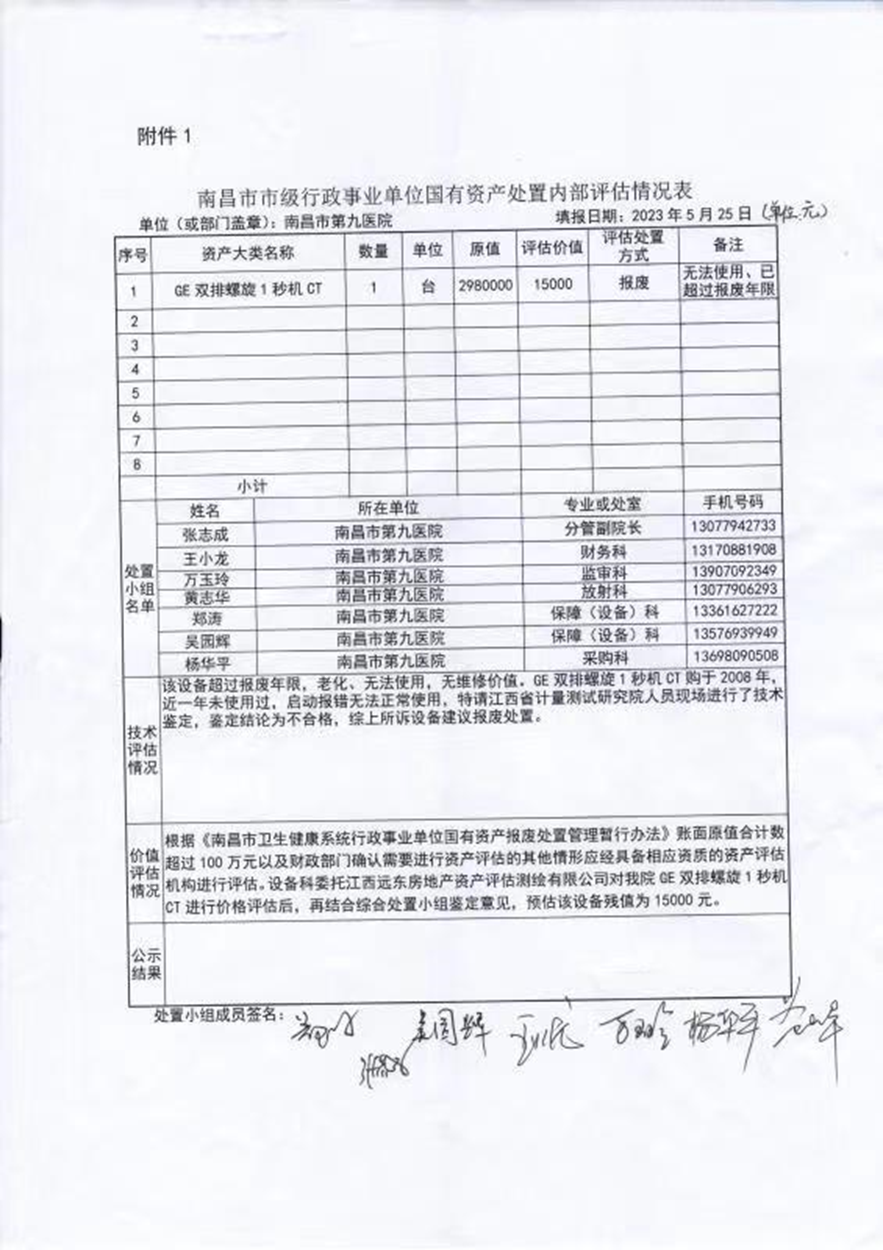 附件 1
南昌市市级行政事业单位国有资产处置内部评估情况表
单位（或部门盖章）：南昌市第九医院 填报日期：2023 年 5 月 25 日 (单位:元)
序号 资产大类名称 数量 单位 原值 评估价值 评估处置方式 备注
1 GE 双排螺旋 1 秒机 CT 1 台 2980000 15000 报废 无法使用、已超过报废年限
2
3
4
5
6
7
8
小计
处置小组名单
姓名 所在单位 专业或处室 手机号码
张志成 南昌市第九医院 分管副院长 13077942733
王小龙 南昌市第九医院 财务科 13170881908
万玉玲 南昌市第九医院 监审科 13907092349
黄志华 南昌市第九医院 放射科 13077906293
郑涛 南昌市第九医院 保障（设备）科 13361627222
吴园辉 南昌市第九医院 保障（设备）科 13576939949
杨华平 南昌市第九医院 采购科 13698090508
技术评估情况
该设备超过报废年限，老化、无法使用，无维修价值。GE 双排螺旋 1 秒机 CT 购于 2008 年，
近一年未使用过，启动报错无法正常使用，特请江西省计量测试研究院人员现场进行了技术
鉴定，鉴定结论为不合格，综上所诉设备建议报废处置。
价值评估情况
根据《南昌市卫生健康系统行政事业单位国有资产报废处置管理暂行办法》账面原值合计数
超过 100 万元以及财政部门确认需要进行资产评估的其他情形应经具备相应资质的资产评估
机构进行评估。设备科委托江西远东房地产资产评估测绘有限公司对我院 GE 双排螺旋 1 秒机
CT 进行价格评估后，再结合综合处置小组鉴定意见，预估该设备残值为 15000 元。
公示结果
处置小组成员签名：
吴园辉 万玉玲 杨华平